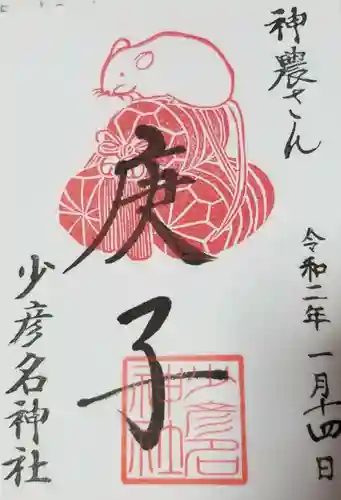 神農さん
令和二年 一月十四日
庚子
少彦名神社
少彦名
神社